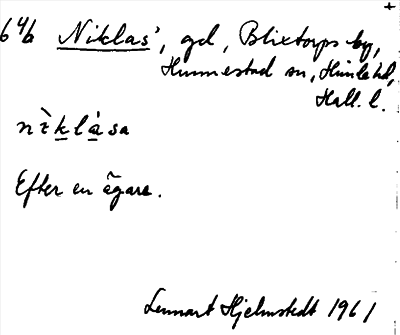 6 4/6 Niklas', gd, Blixtorps by,
Hunnestad sn, Himle hd,
Hall. l.
nìklása
Efter en ägare.
Lennart Hjelmstedt 1961